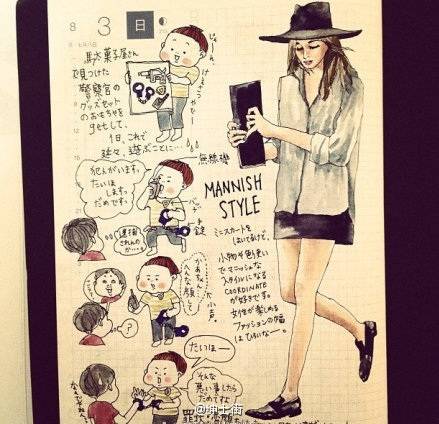 8
3
日
駄菓子屋さん
見つけた
警察官の
グッズセット
のおもちゃを
getして、
1日、これで
延々、遊ぶことに…
じゃーん
無線機
犯人がいます。
たいほ
します。
だめです。
手錠
逮捕
されんの
か…。
？
小声。
たいほー
そんな
悪い事したら
だめでしょ
MANNISH
STYLE
ミニスカートを
はいてるけど、
小物や色使い
でマニッシュな
スタイルになる
COORDINATE
が好きです。
女性が楽しめる
ファッションの幅
はひろいなー。
@绅士街